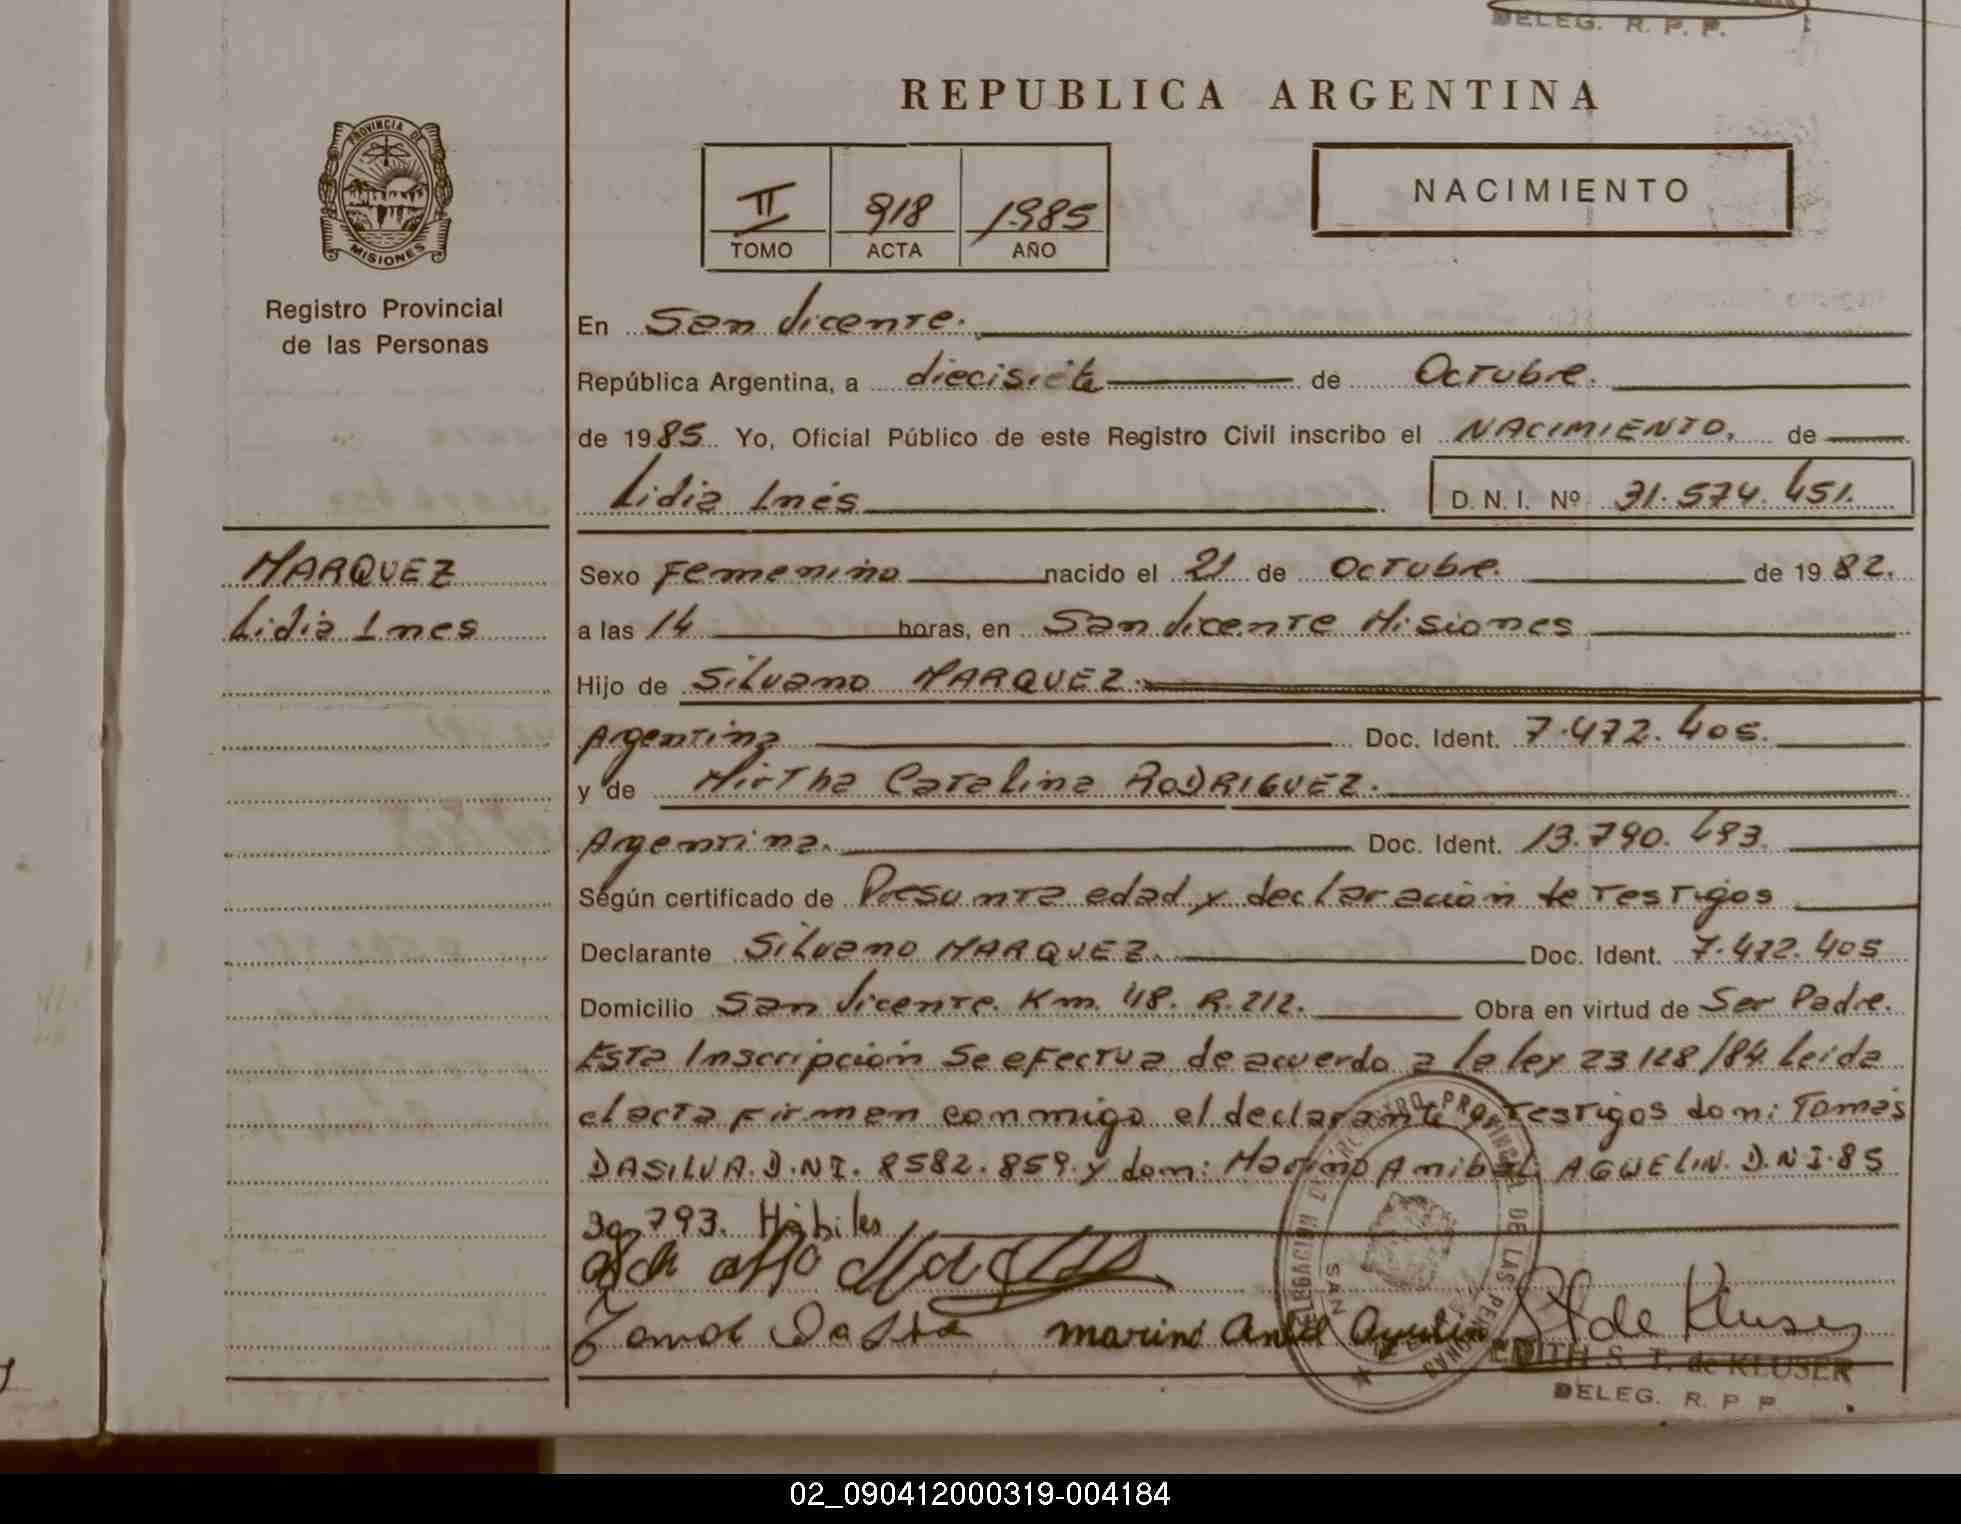 DELEG. R. P. P.
REPUBLICA ARGENTINA
PROVINCIA DE
MISIONES
Registro Provincial
de las Personas
II 918 1985
TOMO ACTA AÑO
NACIMIENTO
En San Vicente.
República Argentina, a diecisiete de Octubre.
de 1985 Yo, Oficial Público de este Registro Civil inscribo el NACIMIENTO, de
Lidia Inés D. N. I. Nº 31.574.451.
MARQUEZ
Lidia Ines
Sexo Femenino nacido el 21 de Octubre. de 1982.
a las 14 horas, en San Vicente Misiones
Hijo de Silvano MARQUEZ.
Argentina Doc. Ident. 7.472.405.
y de Mirtha Catalina RODRIGUEZ.
Argentina. Doc. Ident. 13.790.493.
Según certificado de Presunta edad y declaración de Testigos
Declarante Silvano MARQUEZ. Doc. Ident. 7.472.405
Domicilio San Vicente. Km. 48. R.212. Obra en virtud de Ser Padre.
Esta Inscripción Se efectua de acuerdo a la ley 23128/84. Leida
el acta Firman conmigo el declarante y Testigos don: Tomás
DASILVA. D.N.I. 8582.859. y don: Marino Anibal AGUELIN. D.N.I. 85
30793. Hábiles
marino
de Kluser
DELEGACION REGISTRO PROVINCIAL DE LAS PERSONAS
SAN
EDITH S. T. de KLUSER
DELEG. R. P. P.
02_090412000319-004184